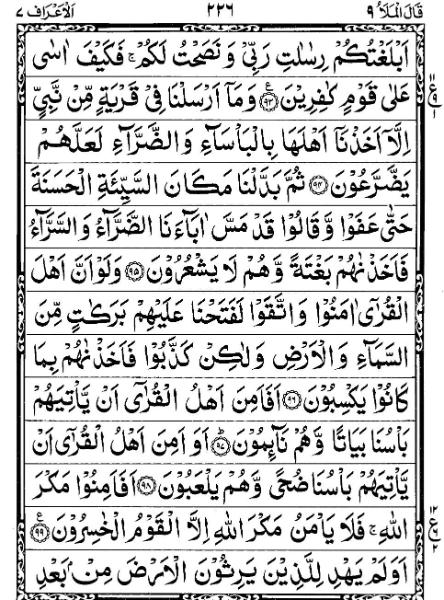 قَالَ الْمَلَاُ ٩ ٢٢٦ اَلْاَعْرَاف ٧
اَبْلَغْتُكُمْ رِسٰلٰتِ رَبِّیْ وَ نَصَحْتُ لَكُمْ ۚ فَكَیْفَ اٰسٰی
عَلٰی قَوْمٍ كٰفِرِیْنَ ﴿۹۳﴾ ع وَ مَاۤ اَرْسَلْنَا فِیْ قَرْیَةٍ مِّنْ نَّبِیٍّ
اِلَّاۤ اَخَذْنَاۤ اَهْلَهَا بِالْبَاْسَآءِ وَ الضَّرَّآءِ لَعَلَّهُمْ
یَضَّرَّعُوْنَ ﴿۹۴﴾ ثُمَّ بَدَّلْنَا مَكَانَ السَّیِّئَةِ الْحَسَنَةَ
حَتّٰی عَفَوْا وَّ قَالُوْا قَدْ مَسَّ اٰبَآءَنَا الضَّرَّآءُ وَ السَّرَّآءُ
فَاَخَذْنٰهُمْ بَغْتَةً وَّ هُمْ لَا یَشْعُرُوْنَ ﴿۹۵﴾ وَ لَوْ اَنَّ اَهْلَ
الْقُرٰۤی اٰمَنُوْا وَ اتَّقَوْا لَفَتَحْنَا عَلَیْهِمْ بَرَكٰتٍ مِّنَ
السَّمَآءِ وَ الْاَرْضِ وَ لٰكِنْ كَذَّبُوْا فَاَخَذْنٰهُمْ بِمَا
كَانُوْا یَكْسِبُوْنَ ﴿۹۶﴾ اَفَاَمِنَ اَهْلُ الْقُرٰۤی اَنْ یَّاْتِیَهُمْ
بَاْسُنَا بَیَاتًا وَّ هُمْ نَآئِمُوْنَ ﴿۹۷﴾ اَوَ اَمِنَ اَهْلُ الْقُرٰۤی اَنْ
یَّاْتِیَهُمْ بَاْسُنَا ضُحًی وَّ هُمْ یَلْعَبُوْنَ ﴿۹۸﴾ اَفَاَمِنُوْا مَكْرَ
اللّٰهِ ۚ فَلَا یَاْمَنُ مَكْرَ اللّٰهِ اِلَّا الْقَوْمُ الْخٰسِرُوْنَ ﴿۹۹﴾ ع
اَوَ لَمْ یَهْدِ لِلَّذِیْنَ یَرِثُوْنَ الْاَرْضَ مِنْۢ بَعْدِ